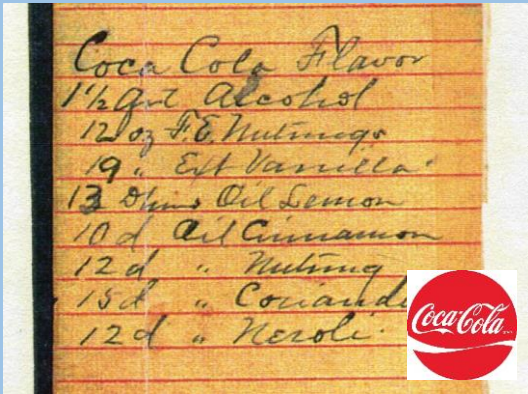 Coca Cola Flavor
1½ Qrt Alcohol
12 oz F.E. Nutmegs
19 " Ext Vanilla
13 Oil Lemon
10 d Oil Cinnamon
12 d " Nutmeg
15 d " Coriande
12 d " Neroli.
Coca-Cola